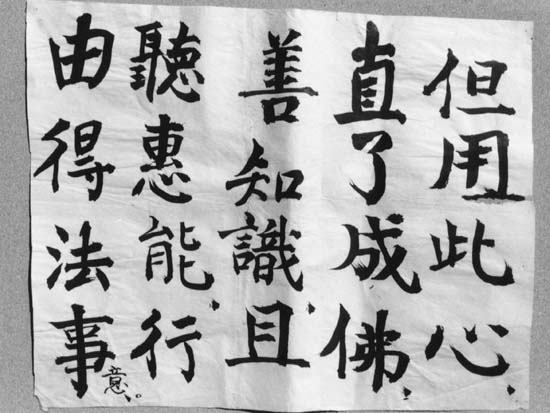 但用此心、
直了成佛、
善知識、且
聽惠能、行
由得法事意。